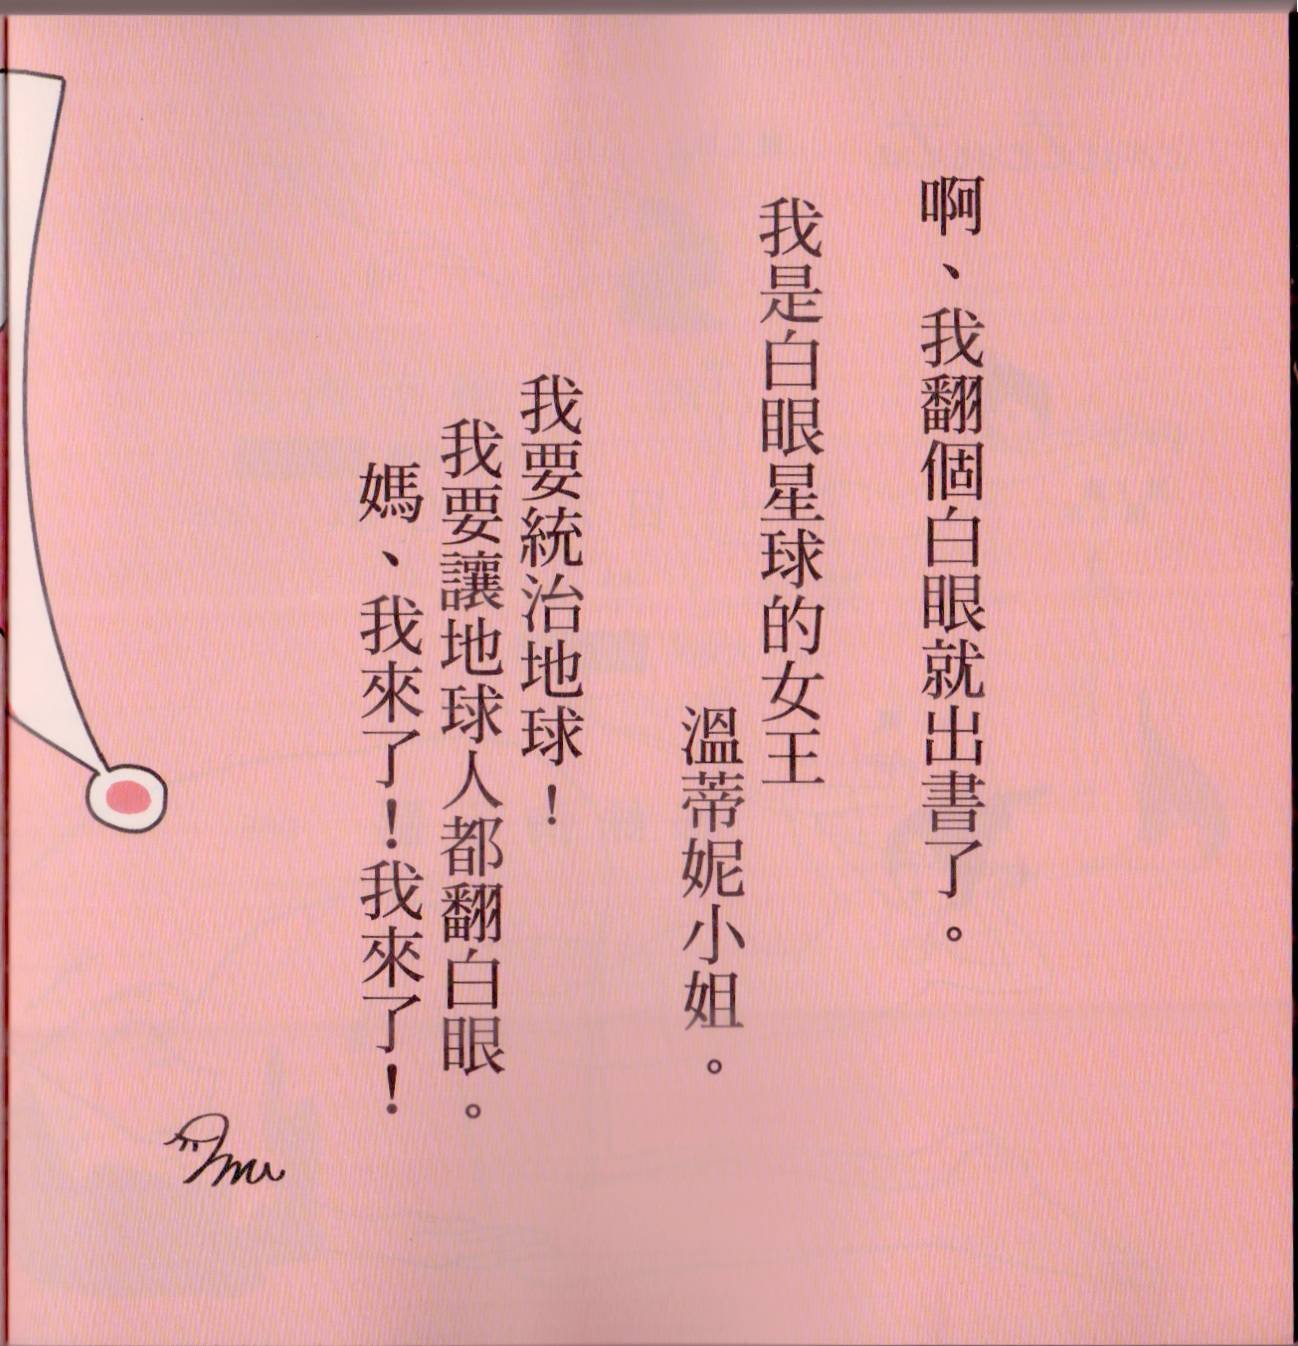 啊、我翻個白眼就出書了。
我是白眼星球的女王
溫蒂妮小姐。
我要統治地球！
我要讓地球人都翻白眼。
媽、我來了！我來了！